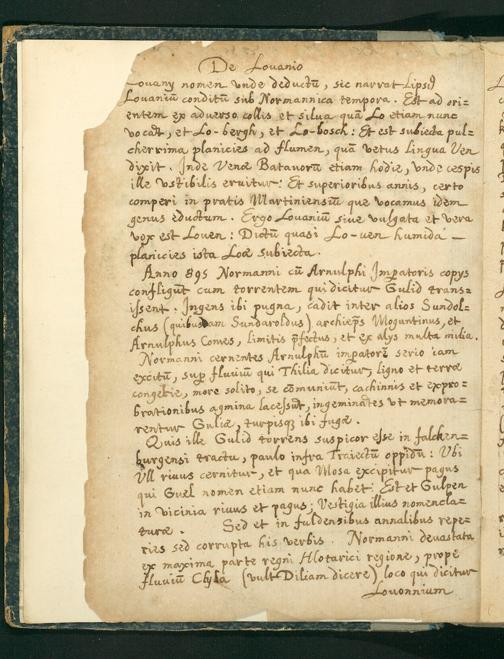 De Louanio
Louany nomen vnde deductū, sic narrat Lipsꝰ
Louaniū conditū sub Normannica tempora. Est ad ori=
entem ex aduerso collis et silua quā Lo etiam nunc
vocāt, et Lo-bergh, et Lo-bosch: Et est subiecta pul=
cherrima planicies ad flumen, quā vetus Lingua Ven
dixit. Inde Venæ Batauorū etiam hodie, vnde cespis
ille vstibilis eruitur: Et superioribus annis, certo
comperi in pratis Martiniensiū que vocamus idem
genus eductum. Ergo Louaniū siue vulgata et vera
vox est Louen: Dictū quasi Lo-uen humida —
planicies ista Loæ subiecta.
Anno 895 Normanni cū Arnulphi Imperatoris copys
confligūt cum torrentem qui dicitur Gulid trans=
issent. Ingens ibi pugna, cadit inter alios Sundol=
chus (quibusdam Sundaroldus) archiep̄s Moguntinus, et
Arnulphus Comes, limitis p̄fectus, et ex alys multa milia.
Normanni cernentes Arnulphū impatorē serio iam
excitū, sup fluuiū qui Thilia dicitur, ligno et terræ
congerie, more solito, se cōmuniūt, cachinnis et expro=
brationibus agmina lacessūt, ingeminātes vt memora=
rentur Guliæ, turpisqꝫ ibi fugæ.
Quis ille Gulid torrens suspicor esse in falcken=
burgensi tractu, paulo infra Traiectū oppidū: Vbi
Vll riuus cernitur, et qua Mosa excipitur pagus
qui Guel nomen etiam nunc habet. Est et Gulpen
in vicinia riuus et pagus; Vestigia illius nomencla=
turæ. Sed et in fuldensibus annalibus repe=
ries sed corrupta his verbis. Normanni deuastata
ex maxima parte regni Hlotarici regione, prope
fluuiū Clyla (vult Diliam dicere) loco qui dicitur
Louonnium